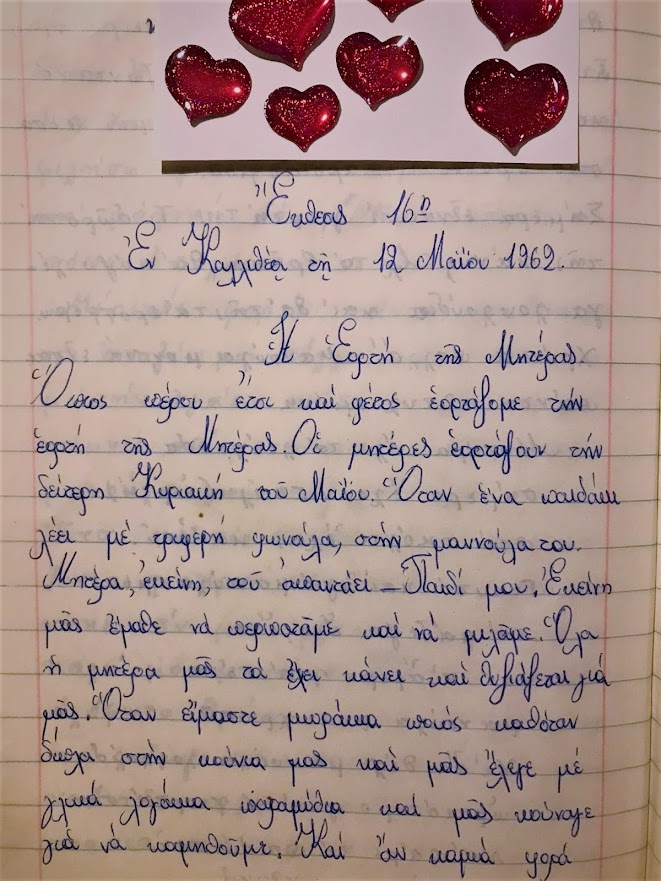 Ἔκθεσις 16η
Ἐν Καλλιθέᾳ τῇ 12 Μαΐου 1969.
Ἡ Ἑορτή τῆς Μητέρας
Ὅπως πέρσυ ἔτσι καί φέτος ἑορτάζομε τήν
ἑορτή τῆς Μητέρας. Οἱ μητέρες ἑορτάζουν τήν
δεύτερη Κυριακή τοῦ Μαΐου. Ὅταν ἕνα παιδάκι
λέει μέ τρυφερή φωνούλα, στήν μαννούλα του.
Μητέρα, ἐκείνη, τοῦ ἀπαντάει – Παιδί μου. Ἐκείνη
μᾶς ἔμαθε νά περπατᾶμε καί νά μιλᾶμε. Ὅλα
ἡ μητέρα μᾶς τά ἔχει κάνει καί θυσιάζεται γιά
μᾶς. Ὅταν εἴμαστε μωράκια ποιός καθόταν
δίπλα στήν κούνια μας καί μᾶς ἔλεγε μέ
γλυκά λογάκια παραμύθια καί μᾶς κούναγε
γιά νά κοιμηθοῦμε. Καί ἄν καμιά φορά